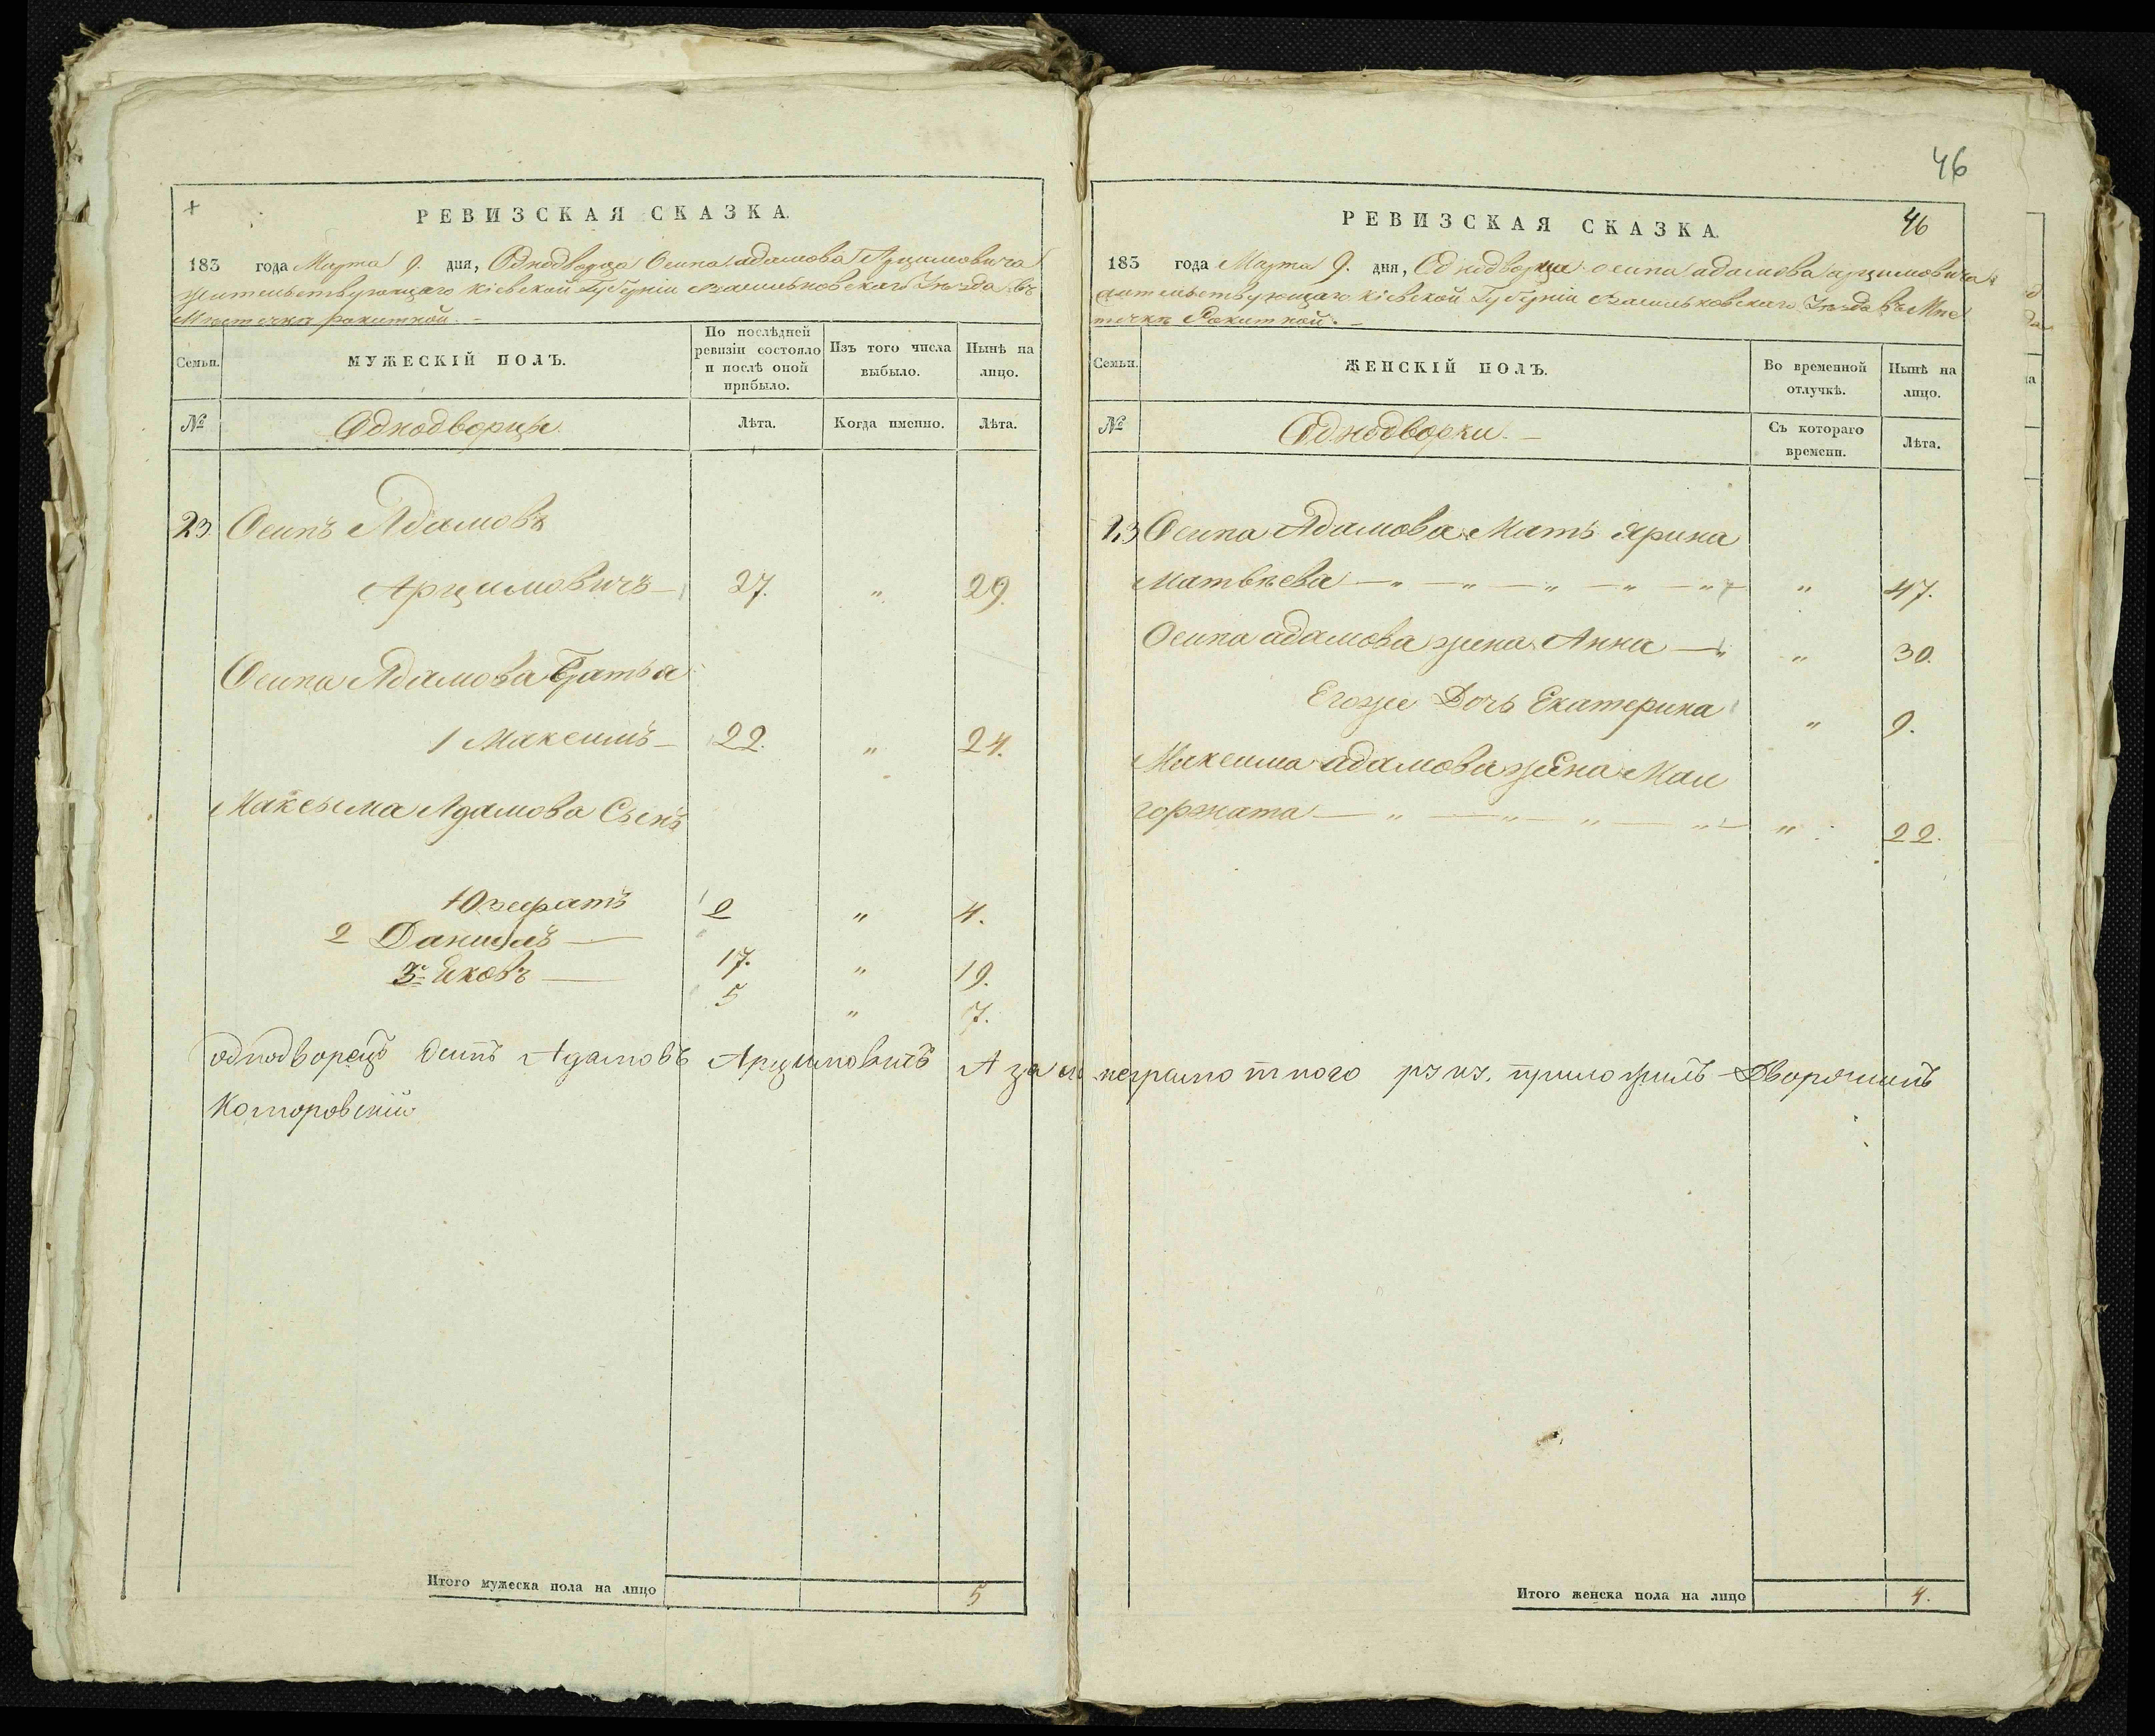 РЕВИЗСКАЯ СКАЗКА.
183 года Марта 9. дня, Однодворца Осипа адамова Арцимовича
жительствующаго Кіевской Губерніи Васильковскаго Уѣзда въ
Мѣстечкѣ Ракитной. –
Семьи.
МУЖЕСКІЙ ПОЛЪ.
По послѣдней ревизіи состояло и послѣ оной прибыло.
Изъ того числа выбыло.
Нынѣ на лицо.
№
Однодворцы.
Лѣта.
Когда именно.
Лѣта.
23. Осипъ Адамовъ
Арцимовичъ – 27. " 29.
Осипа Адамова Братья
1 Максимъ – 22. " 24.
Максыма Адамова Сынъ
2 " 4.
2 Данилъ — 17. " 19.
3 Яковъ — 5 " 7.
однодворецъ Осипъ Адамовъ Арцимовичъ А за неграмотного приложилъ Дворянинъ
Которовскій
Итого мужеска пола на лицо 5
46
РЕВИЗСКАЯ СКАЗКА.
46
183 года Марта 9. дня, Однодворца осипа адамова арцимовича
жительствующаго Кіевской Губерніи Васильковскаго Уѣзда въ Мѣс
течкѣ Ракитной. –
Семьи.
ЖЕНСКІЙ ПОЛЪ.
Во временной отлучкѣ.
Нынѣ на лицо.
№
Однодворки. –
Съ котораго времени.
Лѣта.
23 Осипа Адамова Мать Ярина
Матвѣева — " — " — " — " — " " 47.
Осипа адамова жена Анна — " " 30.
Егоже Дочь Екатерина " 9.
Максима адамова жена Мал
горжата — " — " — " — " – " 22.
Итого женска пола на лицо 4.